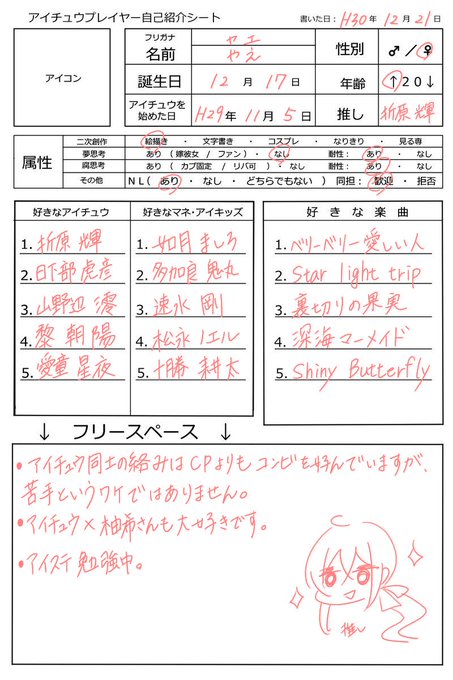 アイチュウプレイヤー自己紹介シート
書いた日：H30年 12月 21日
アイコン
フリガナ ヤエ
名前 やえ
性別 ♂/♀
誕生日 12月 17日
年齢 ↑20↓
アイチュウを始めた日 H29年 11月 5日
推し 折原 輝
属性
二次創作 絵描き ・ 文字書き ・ コスプレ ・ なりきり ・ 見る専
夢思考 あり （ 嫁彼女 / ファン ） ・ なし 耐性： あり ・ なし
腐思考 あり （ カプ固定 / リバ可 ） ・ なし 耐性： あり ・ なし
その他 NL（ あり ・ なし ・ どちらでもない ） 同担： 歓迎 ・ 拒否
好きなアイチュウ
1. 折原 輝
2. 日下部 虎彦
3. 山野辺 澪
4. 黎 朝陽
5. 愛童 星夜
好きなマネ・アイキッズ
1. 如月 ましろ
2. 多加良 鬼丸
3. 速水 剛
4. 松永 ノエル
5. 十勝 耕太
好きな楽曲
1. ベリーベリー愛しい人
2. Star light trip
3. 裏切りの果実
4. 深海マーメイド
5. Shiny Butterfly
↓ フリースペース ↓
・アイチュウ同士の絡みはCPよりもコンビを好んでいますが、
苦手というワケではありません。
・アイチュウ×柚希さんも大好きです。
・アイステ勉強中。
推し